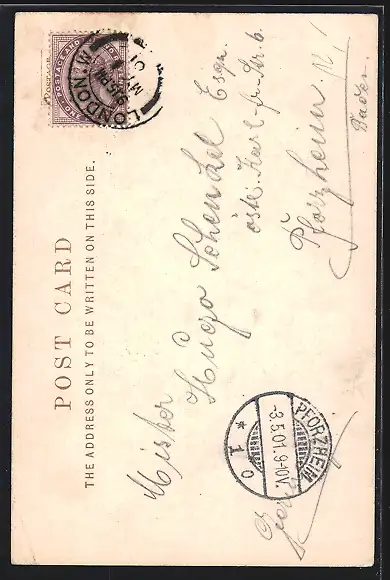 POST CARD
THE ADDRESS ONLY TO BE WRITTEN ON THIS SIDE.
POSTAGE
LONDON. W.
9.15 PM
MY 1
01
Mister
Hugo Schenkel Esqr.
östl. Karl-fr. Str. 6.
Pforzheim
Baden
PFORZHEIM
-3.5.01.9-10V.
* 1 o